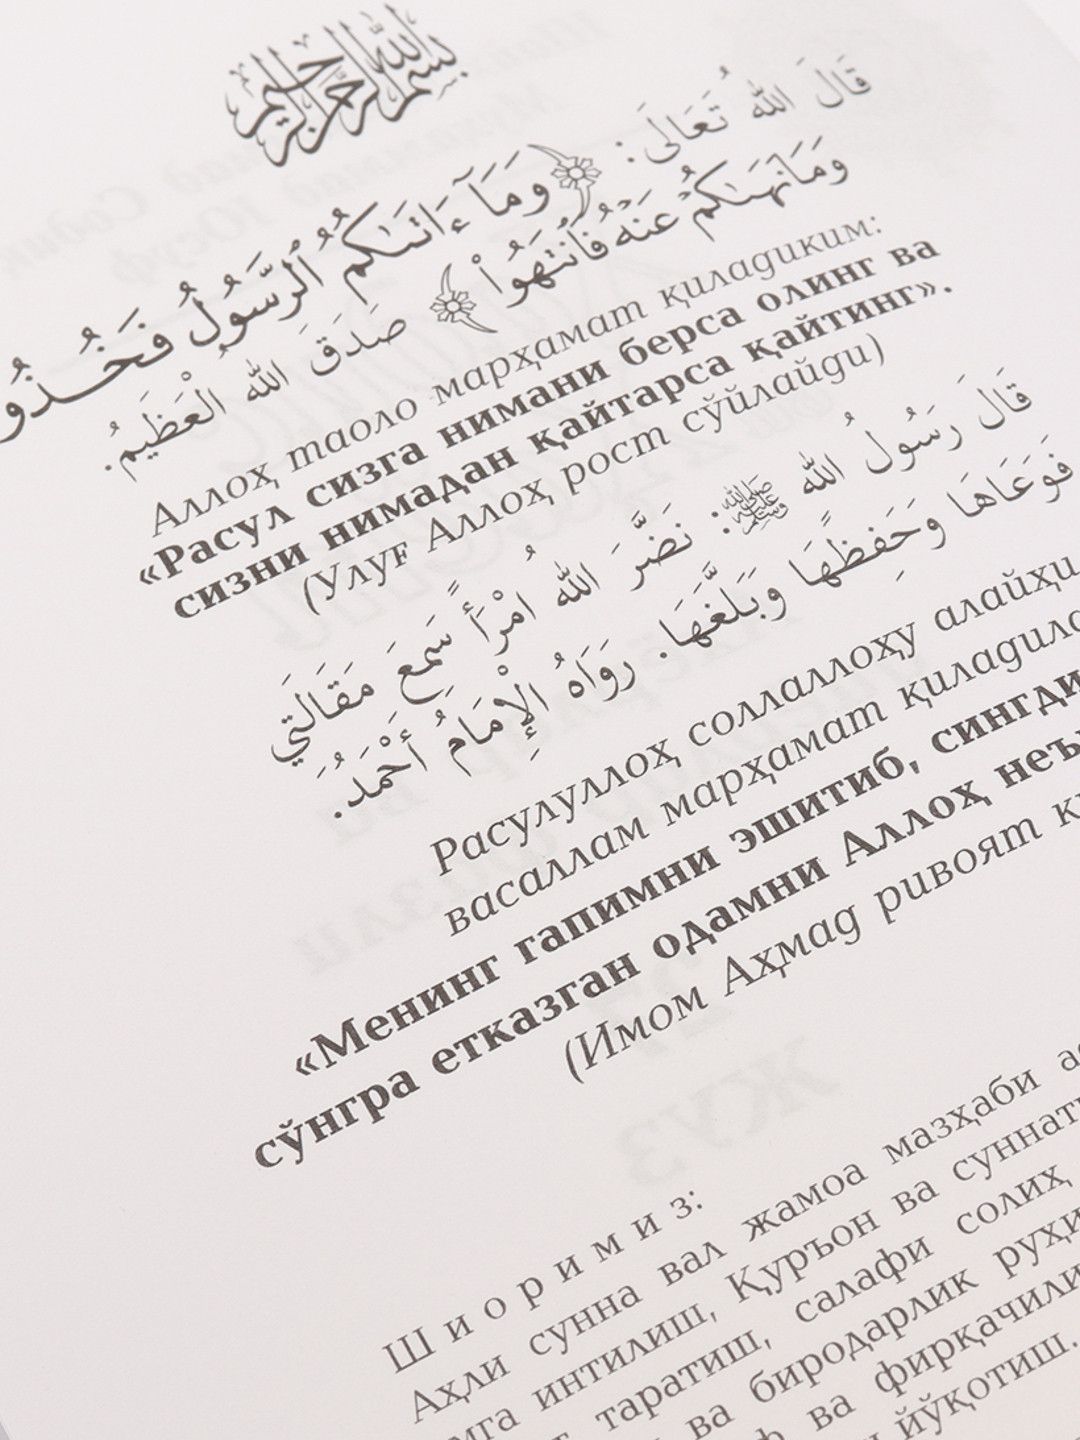 بسم الله الرحمن الرحيم
قَالَ اللهُ تَعَالَى: ﴿وَمَآ ءَاتَىٰكُمُ ٱلرَّسُولُ فَخُذُو
وَمَانَهَىٰكُمْ عَنْهُ فَٱنتَهُواْ﴾ صَدَقَ اللهُ الْعَظِيمُ.
Аллоҳ таоло марҳамат қиладиким:
«Расул сизга нимани берса олинг ва
сизни нимадан қайтарса қайтинг».
(Улуғ Аллоҳ рост сўйлайди)
قَالَ رَسُولُ اللهِ ﷺ: نَضَّرَ اللهُ امْرَأً سَمِعَ مَقَالَتِي
فَوَعَاهَا وَحَفِظَهَا وَبَلَّغَهَا. رَوَاهُ الْإِمَامُ أَحْمَدُ.
Расулуллоҳ соллаллоҳу алайҳи
васаллам марҳамат қиладила
«Менинг гапимни эшитиб, сингди
сўнгра етказган одамни Аллоҳ неъ
(Имом Аҳмад ривоят қ
Шиоримиз:
Аҳли сунна вал жамоа мазҳаби ас
интилиш, Қуръон ва суннат
таратиш, салафи солиҳ
ва биродарлик руҳи
ва фирқачили
йўқотиш.